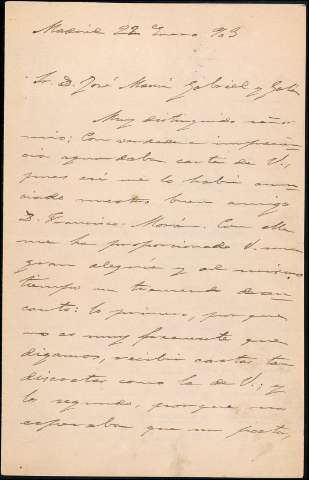 Madrid 22 Enero 903
Sr. D. José María Gabriel y Galán
Muy distinguido señor
mío; Con verdadera impacien-
cia aguardaba carta de V.,
pues así me lo había anun-
ciado nuestro buen amigo
D. Francisco Morán. Con ella
me ha proporcionado V. una
gran alegría y al mismo
tiempo un tremendo desen-
canto: lo primero, porque
no es muy frecuente que
digamos, recibir cartas tan
discretas como la de V.; y
lo segundo, porque, no
esperaba que un poeta,